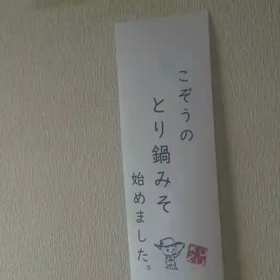 こぞうの
とり鍋みそ
始めました。